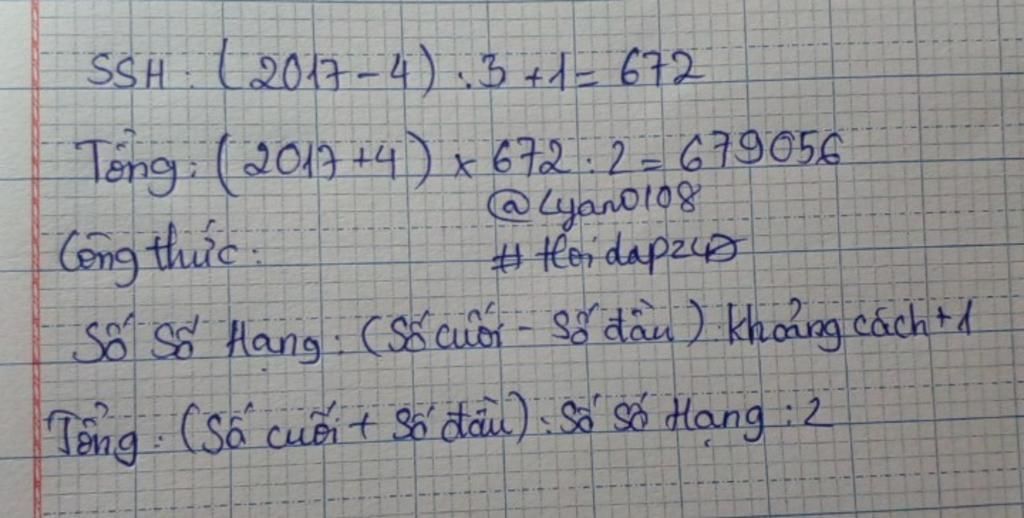 SSH: (2017-4) : 3 +1= 672
Tổng: (2017+4) x 672 : 2 = 679056
@Lyan0108
Công thức:
# Hoidap247
Số Số Hạng: (Số cuối - Số đầu) : khoảng cách +1
Tổng: (Số cuối + Số đầu) . Số số Hạng : 2